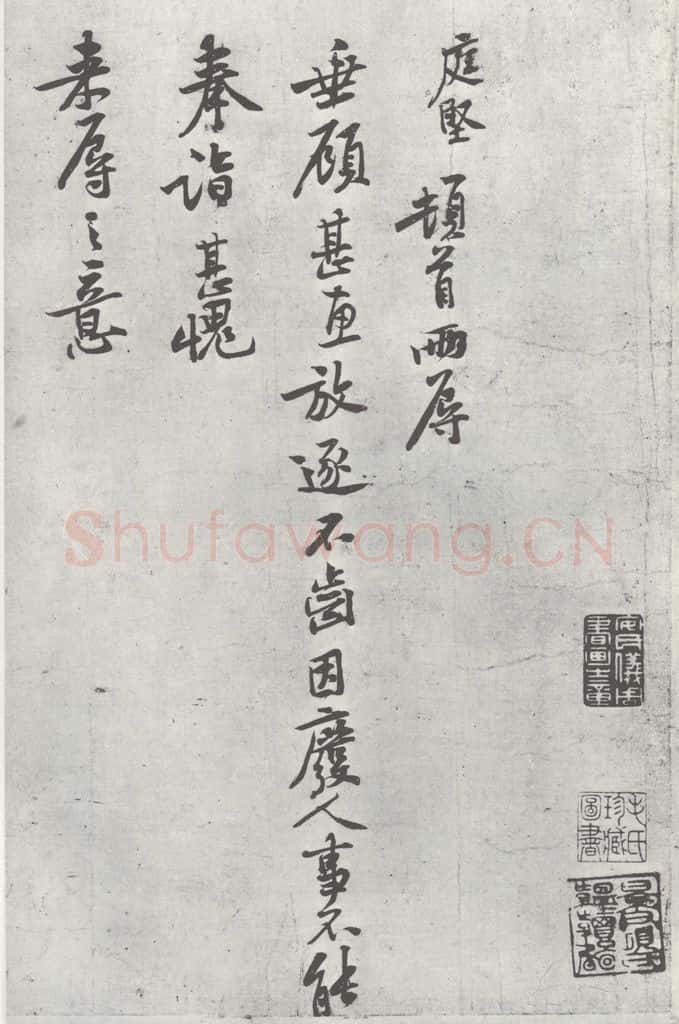 庭堅頓首兩辱
垂顧甚惠放逐不齒因廢人事不能
奉詣甚愧
来辱之意
Shufawang.CN
安儀周書畫之章
毛氏珍藏圖書